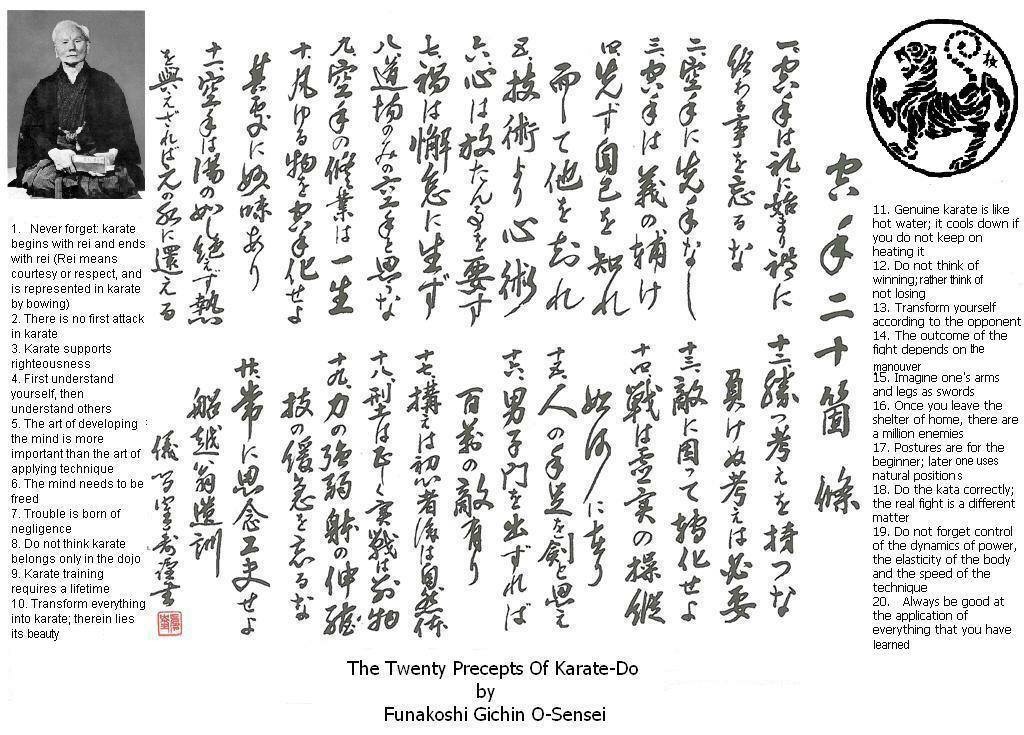 空手二十箇條
一、空手は礼に始まり禮に
終わる事を忘るな
二、空手に先手なし
三、空手は義の補け
四、先ず自己を知れ
而して他を知れ
五、技術より心術
六、心は放たん事を要す
七、禍は懈怠に生ず
八、道場のみの空手と思うな
九、空手の修業は一生
十、凡ゆる物を空手化せよ
其処に妙味あり
十一、空手は湯の如し絶えず熱
を與えざれば元の水に還える
十二、勝つ考えを持つな
負けぬ考えは必要
十三、敵に因って轉化せよ
十四、戦は虚実の操縦
如何に在り
十五、人の手足を劍と思え
十六、男子門を出ずれば
百萬の敵有り
十七、構えは初心者後は自然体
十八、型は正しく実戦は別物
十九、力の強弱躰の伸縮
技の緩急を忘るな
廿、常に思念工夫せよ
船越翁遺訓
1. Never forget: karate
begins with rei and ends
with rei (Rei means
courtesy or respect, and
is represented in karate
by bowing)
2. There is no first attack
in karate
3. Karate supports
righteousness
4. First understand
yourself, then
understand others
5. The art of developing
the mind is more
important than the art of
applying technique
6. The mind needs to be
freed
7. Trouble is born of
negligence
8. Do not think karate
belongs only in the dojo
9. Karate training
requires a lifetime
10. Transform everything
into karate; therein lies
its beauty
11. Genuine karate is like
hot water; it cools down if
you do not keep on
heating it
12. Do not think of
winning; rather think of
not losing
13. Transform yourself
according to the opponent
14. The outcome of the
fight depends on the
manouver
15. Imagine one's arms
and legs as swords
16. Once you leave the
shelter of home, there are
a million enemies
17. Postures are for the
beginner; later one uses
natural positions
18. Do the kata correctly;
the real fight is a different
matter
19. Do not forget control
of the dynamics of power,
the elasticity of the body
and the speed of the
technique
20. Always be good at
the application of
everything that you have
learned
The Twenty Precepts Of Karate-Do
by
Funakoshi Gichin O-Sensei